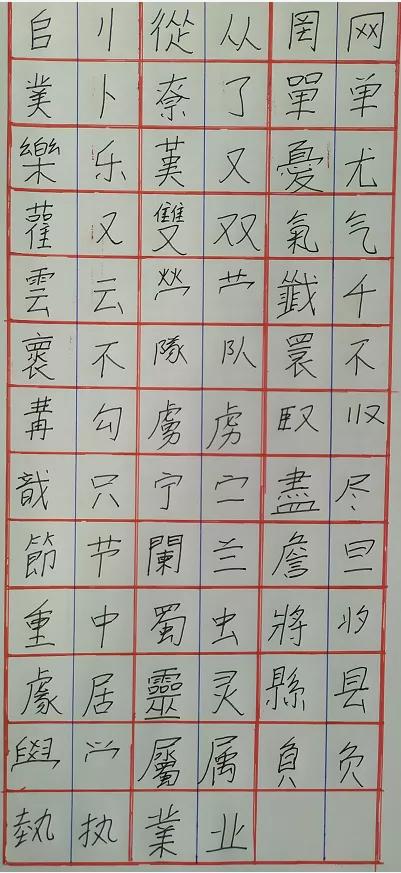 𠂤 刂 從 从 罔 网
業 卜 奈 了 單 单
樂 乐 堇 又 憂 尤
雚 又 雙 双 氣 气
雲 云 𤇾 龷 韱 千
褱 不 隊 队 睘 不
冓 勾 虜 虏 臤 〢又
戠 只 宁 㝉 盡 尽
節 节 闌 兰 詹 旦
重 中 蜀 虫 將 将
豦 居 靈 灵 縣 县
𦥯 𰃮 屬 属 負 负
執 执 業 业